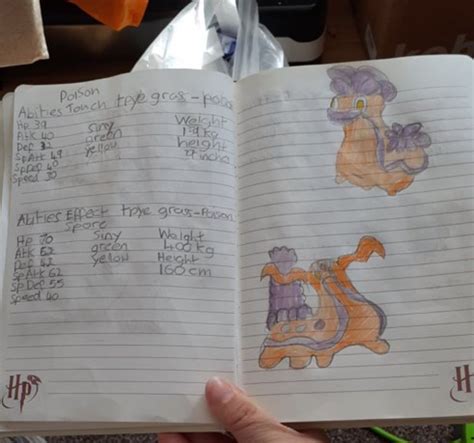 Poison
Abities Touch tpye gras-poison
Hp 39
Atk 40 siny Weight
Def 32 green 19 kg
SpAtk 49 yellow height
SpDef 40 27 inche
Speed 30
Abities Effect tpye gras-Poison
Spore
Hp 70 siny Waight
Atk 52 green 400 kg
Def 42 yellow Height
SpAtk 62 160 cm
SpDef 55
Speed 40
Hp